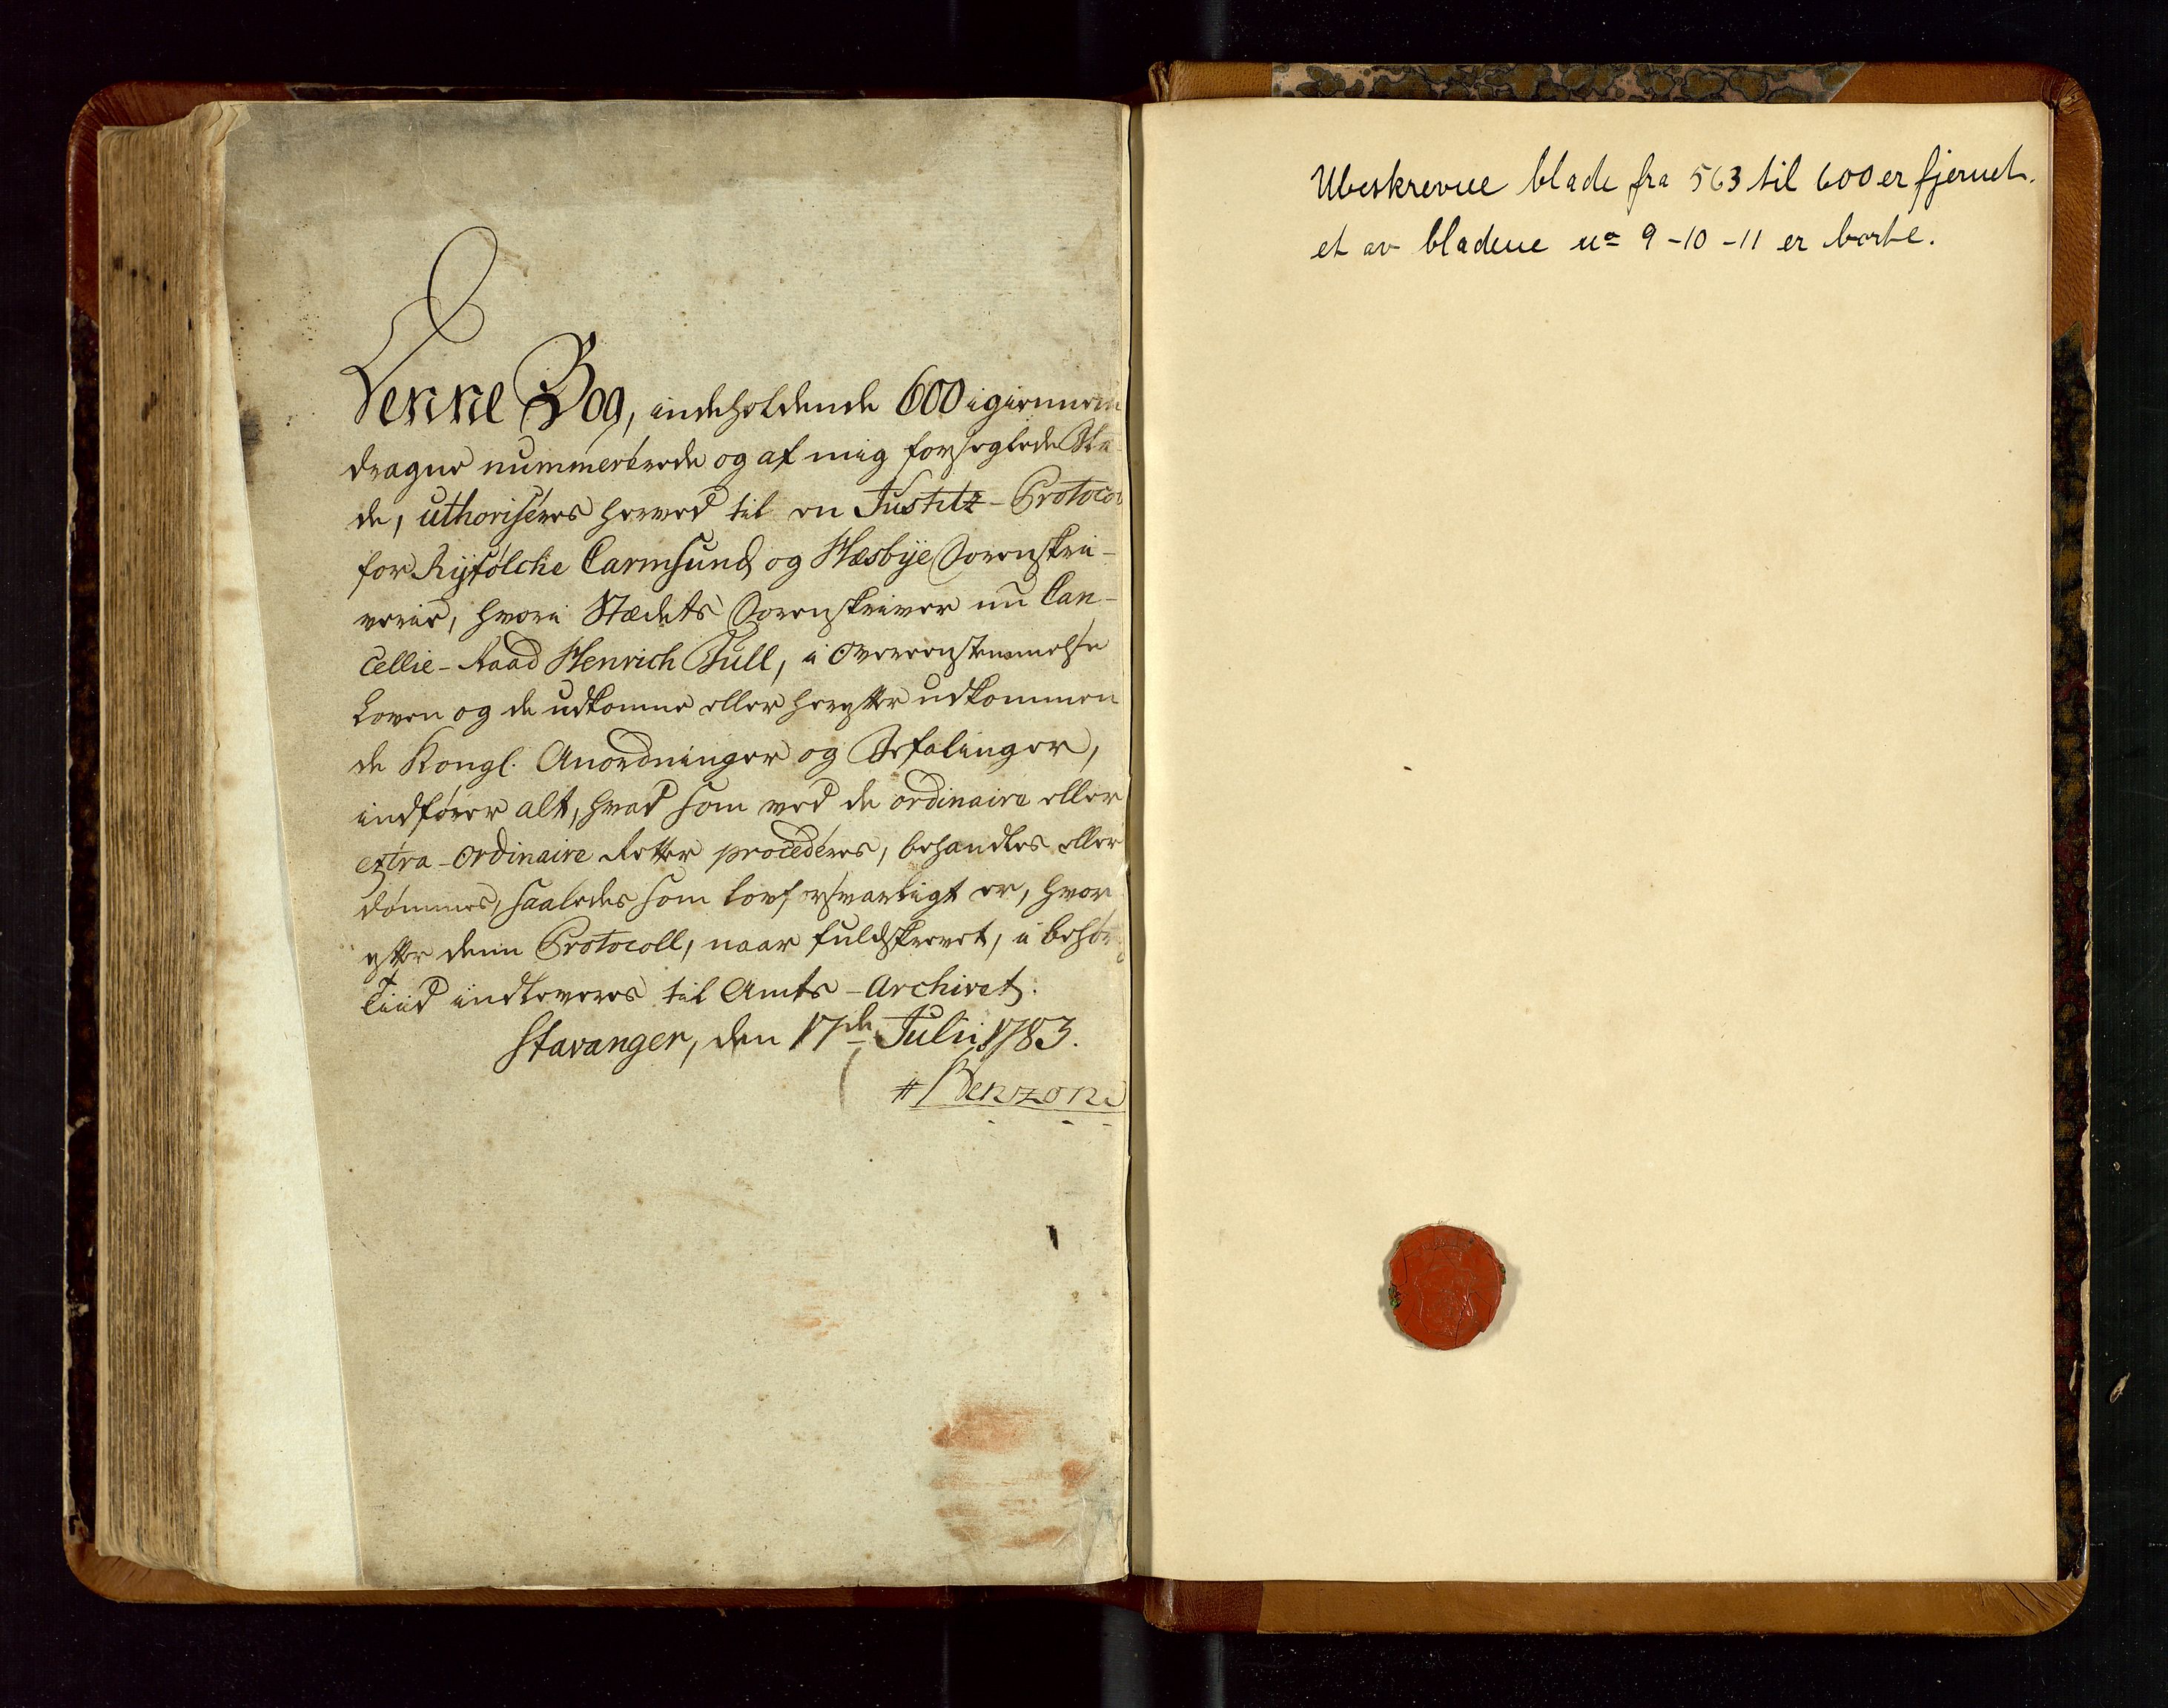 Denne Bog, indeholdende 600 igiennem
dragne nummererede og af mig forseglede Bla
de, uthoriseres herved til en Justitz-Protocol
for Ryfölcke Carmsund og Hæsbye Sorenskri-
verie, hvori Stædets Sorenskriver nu Can-
cellie-Raad Henrich Tull, i Overeenstemmelse
Loven og de udkomne eller herefter udkommen
de Kongl. Anordninger og Befalinger,
indfører alt, hvad som ved de ordinaire eller
extra-ordinaire Retter procederes, behandles eller
dømmes, saaledes som lovforsvarligt er, hvor
efter denne Protocoll, naar fuldskrevet, i behør
Tiid indleveres til Amts-Archivet.
Stavanger, den 17de Julii 1783.
Benzon
Ubeskrevne blade fra 563 til 600 er fjernet.
et av bladene no 9-10-11 er borte.